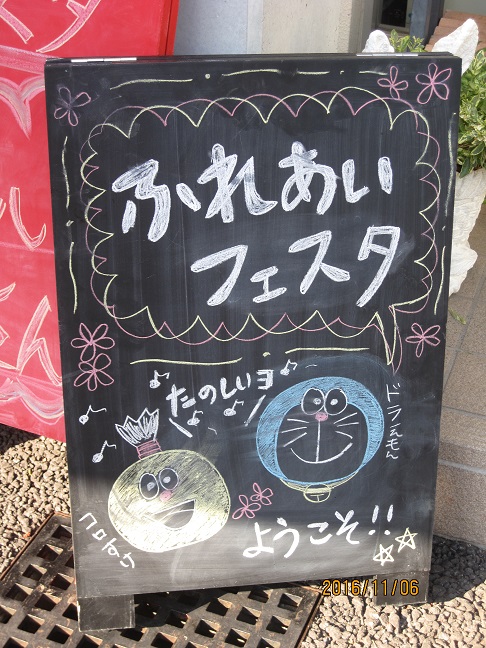 ふれあい
フェスタ
たのしいヨ
ドラえもん
ようこそ!!
2016/11/06